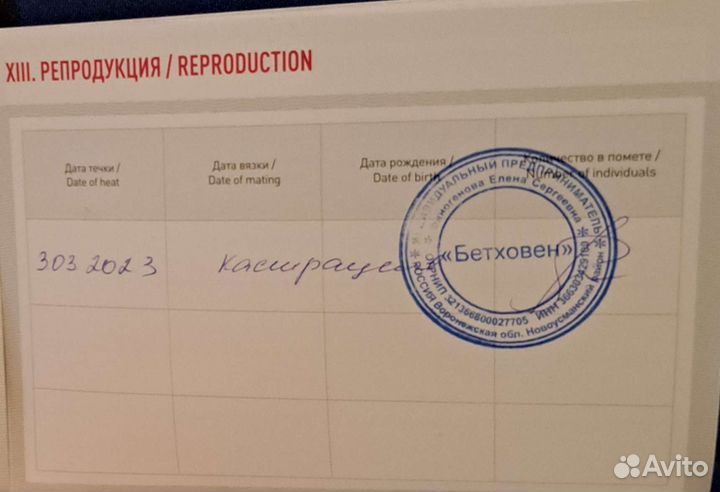 XIII. РЕПРОДУКЦИЯ / REPRODUCTION
Дата течки /
Date of heat
Дата вязки /
Date of mating
Дата рождения /
Date of birth
Количество в помете /
Number of individuals
3 03 2023
кастрация
ИНДИВИДУАЛЬНЫЙ ПРЕДПРИНИМАТЕЛЬ
Елена Сергеевна
«Бетховен»
ОГРНИП 321366800027705 ИНН
РОССИЯ Воронежская обл. Новоусманский район
Avito